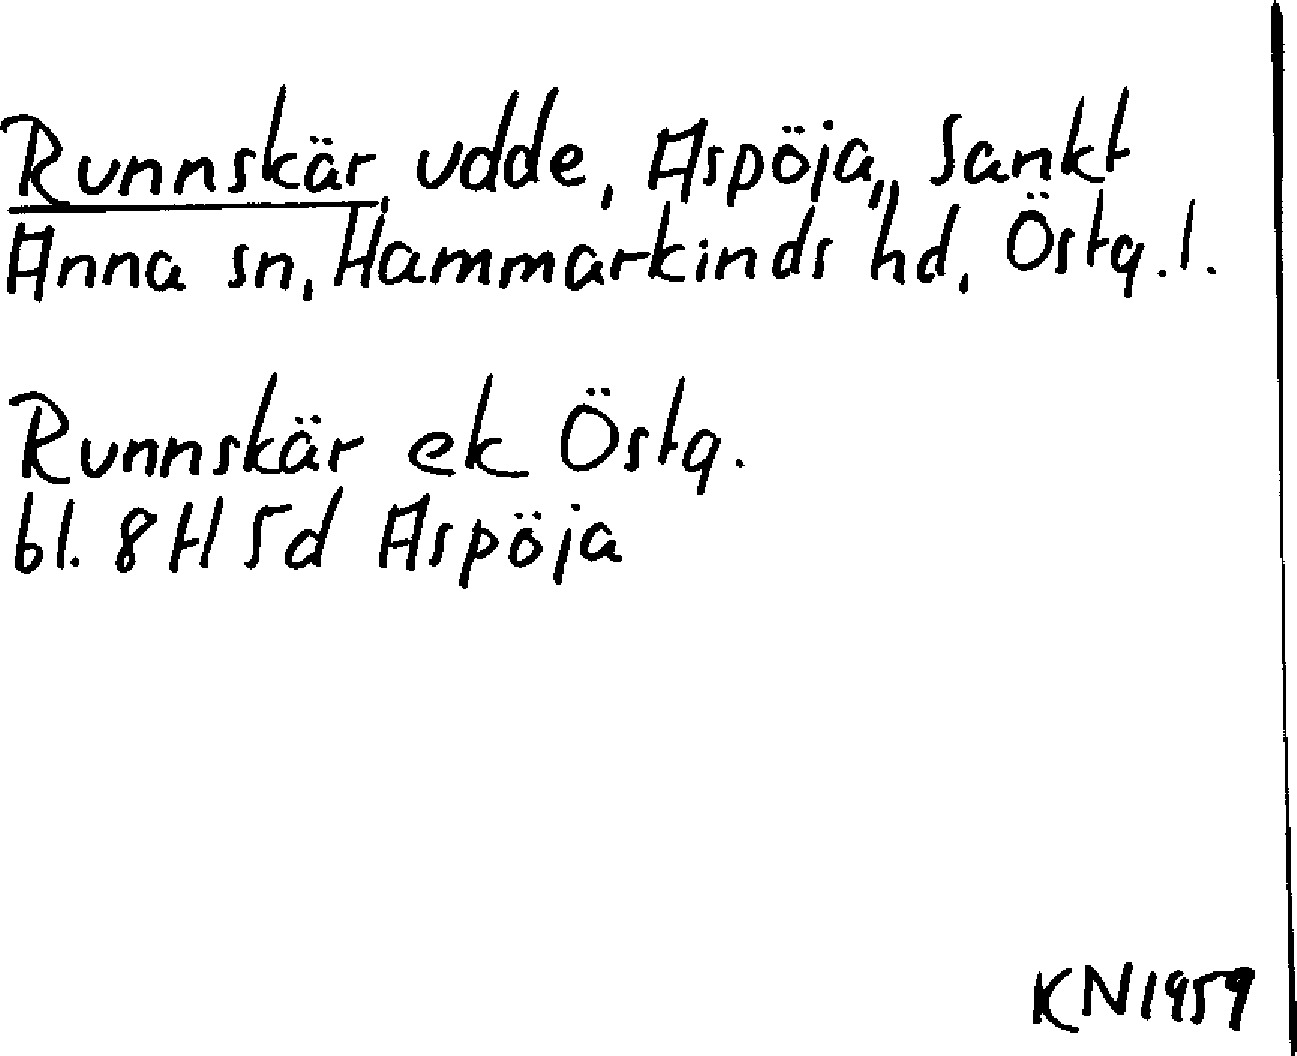 Runnskär, udde, Aspöja,, Sankt
Anna sn, Hammarkinds hd, Östg.l.
Runnskär ek Östg.
bl. 8H 5d Aspöja
KN1959